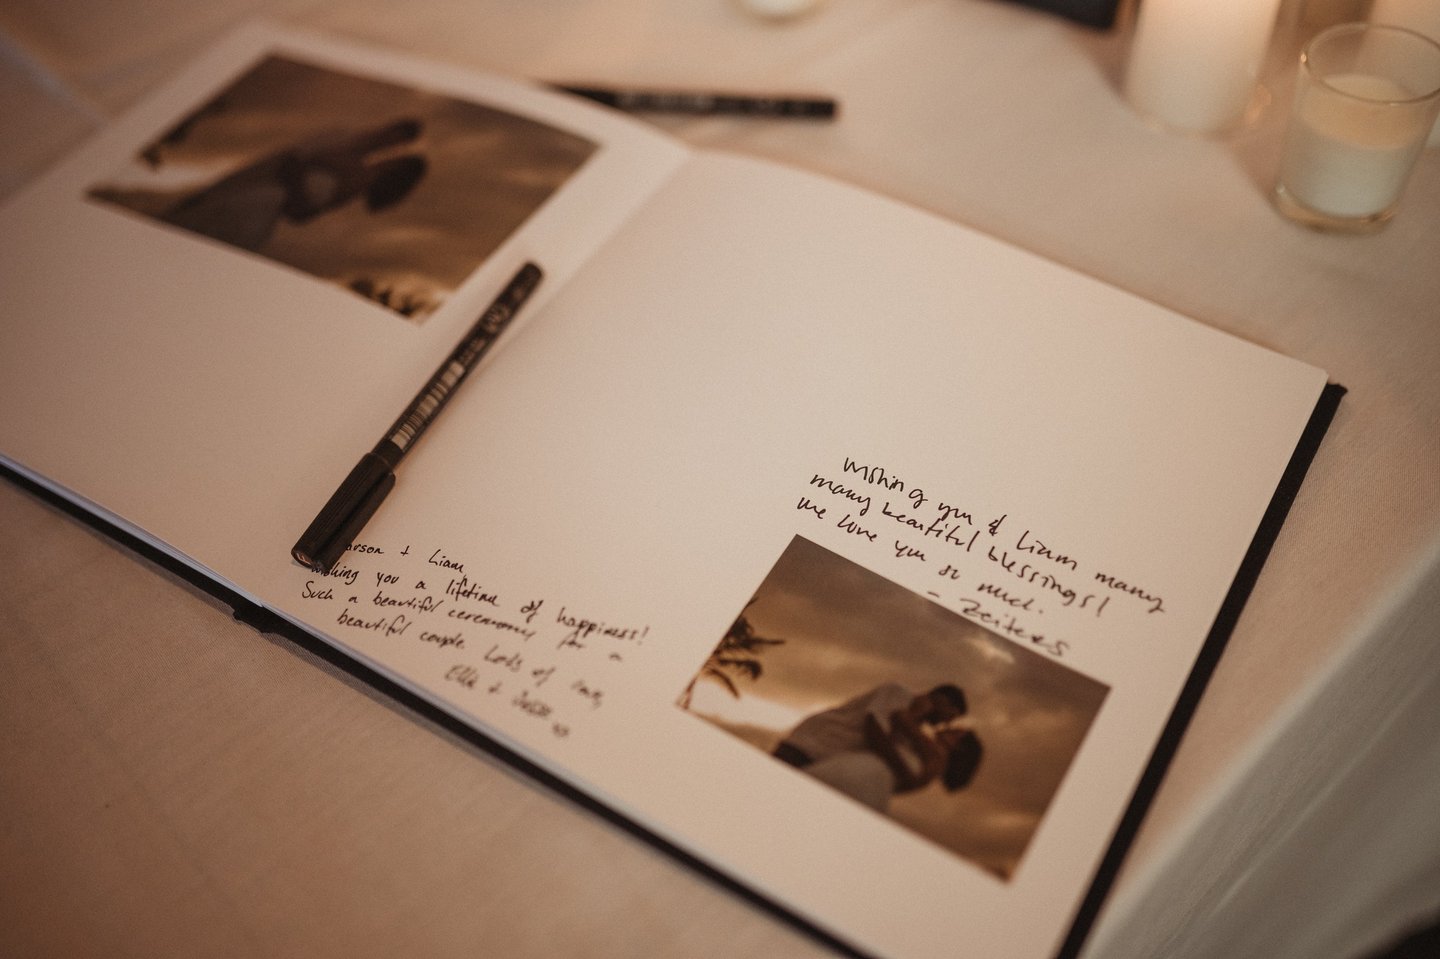 arson + Liam
wishing you a lifetime of happiness!
Such a beautiful ceremony for a
beautiful couple. Lots of love,
Elle +
Wishing you & Liam many
many beautiful blessings!
We love you so much.
- Zeiters